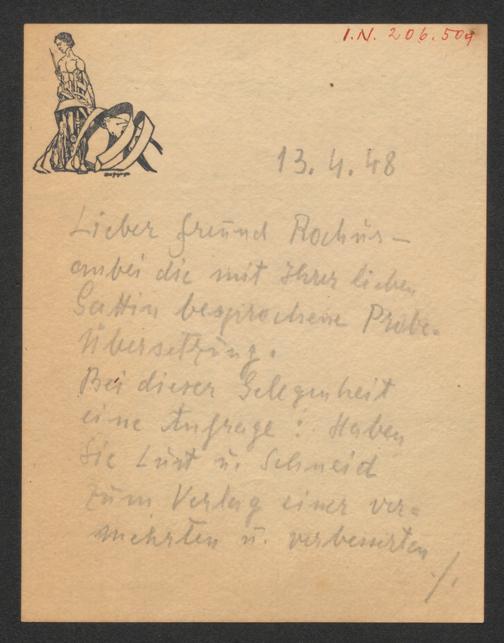 I.N. 206.509
13.4.48
Lieber Freund Rochus –
anbei die mit Ihrer lieben
Gattin besprochene Probe-
Übersetzung.
Bei dieser Gelegenheit
eine Anfrage: Haben
Sie Lust u. Schneid
zum Verlag einer ver=
mehrten u. verbesserten
./.